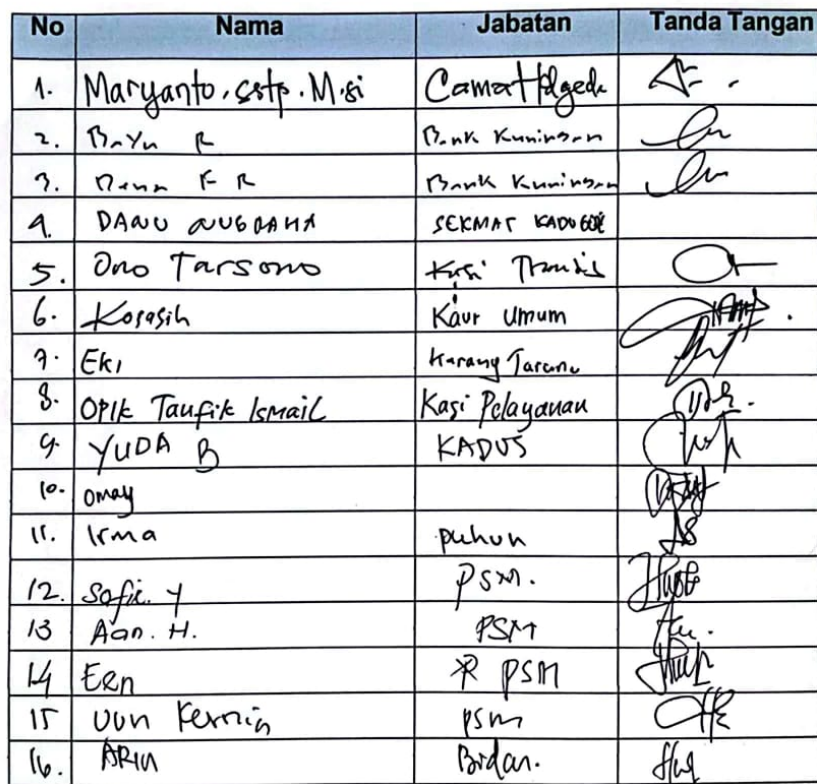 No Nama Jabatan Tanda Tangan
1. Maryanto. SSTP. M.si Camat
2. Bayu R Bank Kuningan
3. F R Bank Kuningan
4. DANU NUGRAHA SEKMAT KADUGEDE
5. Ono Tarsono Kasi
6. Kosasih Kaur Umum
7. Eki Karang Taruna
8. OPIK Taufik Ismail Kasi Pelayanan
9. YUDA B KADUS
10. Omay
11. Irma
12. Sofie. Y PSM.
13 Aan. H. PSM
14 Een PSM
15 uun Kurnia PSM
16. ARIN Bidan.